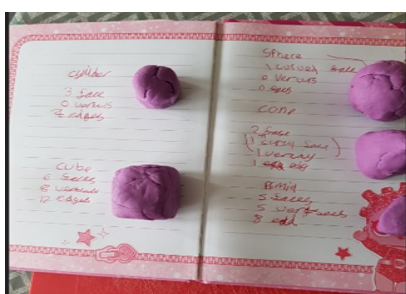 cylider
3 face
0 vertus
2 edges
cube
6 faces
8 vertices
12 edges
Sphere
1 curved face
0 vertus
0 eges
cone
2 face
1 curvy face
1 vertcy
1 egg
5 faces
5 vert
8 edd